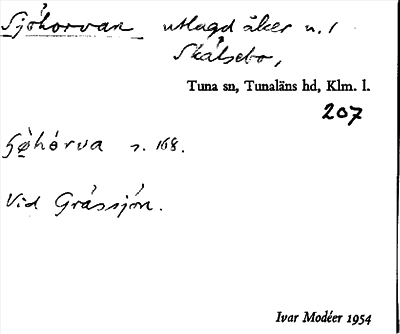 Sjöhorvan utlagd åker n. 1
Skålsebo,
Tuna sn, Tunaläns hd, Klm. l.
207
s. 168.
Vid Gråssjön.
Ivar Modéer 1954